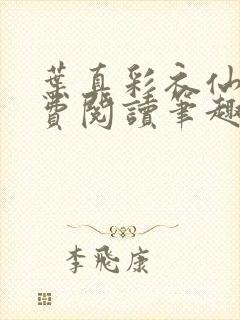 葉真彩衣仙
費閱讀筆趣
李飛康